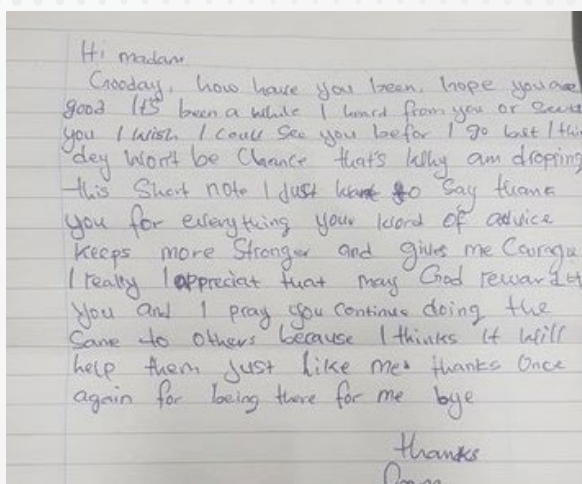 Hi madam
Gooday, how have you been, hope you are
good It's been a while I heard from you or seen
you I wish I coul see you befor I go but I thin
dey won't be Chance that's why am droping
this Short note I just want to Say thank
you for everything your word of advice
keeps more Stronger and gives me Courage
I really appreciat that may God reward
you and I pray you Continue doing the
Same to others because I thinks it will
help them just like me thanks Once
again for being there for me bye
thanks